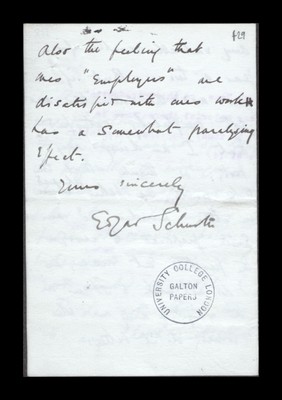 f29
Also the feeling that
ones "Employers" are
dissatisfied with ones work
has a somewhat paralyzing
effect.
Yours sincerely
Edgar Schuster
UNIVERSITY COLLEGE LONDON
GALTON
PAPERS